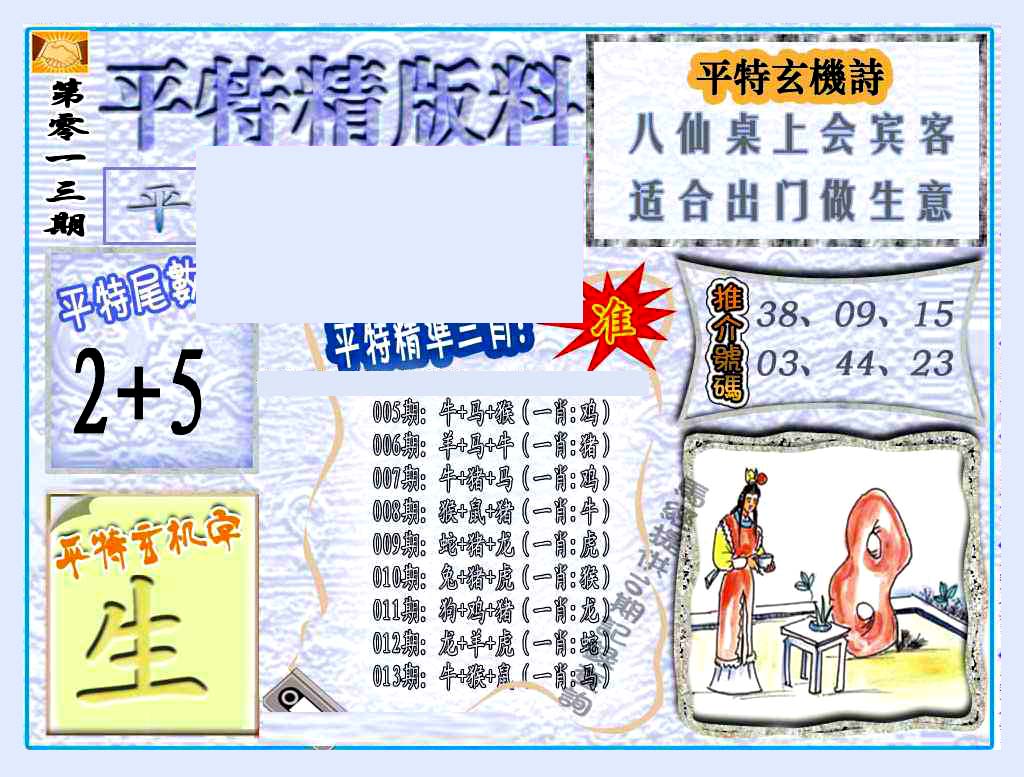 第零一三期
平特精版料
平
平特玄機詩
八仙桌上会宾客
适合出门做生意
平特尾數
2+5
平特精準三肖!
准
推介號碼
38、09、15
03、44、23
005期: 牛+马+猴(一肖:鸡)
006期: 羊+马+牛(一肖:猪)
007期: 牛+猪+马(一肖:鸡)
008期: 猴+鼠+猪(一肖:牛)
009期: 蛇+猪+龙(一肖:虎)
010期: 兔+猪+虎(一肖:猴)
011期: 狗+鸡+猪(一肖:龙)
012期: 龙+羊+虎(一肖:蛇)
013期: 牛+猴+鼠(一肖:马)
平特玄机字
生